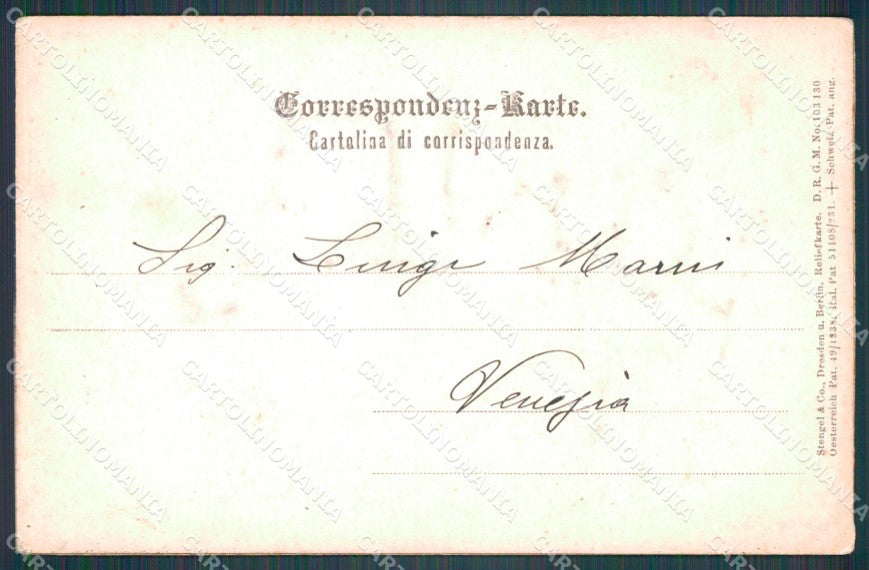 Correspondenz-Karte.
Cartolina di corrispondenza.
Sig. Luigi Marini
Venezia
Stengel & Co., Dresden u. Berlin. Reliefkarte. D. R. G. M. No. 103 130
Oesterreich Pat. 49/1838. Ital. Pat. 51108/231. + Schweiz Pat. ang.
CARTOLINOMANIA